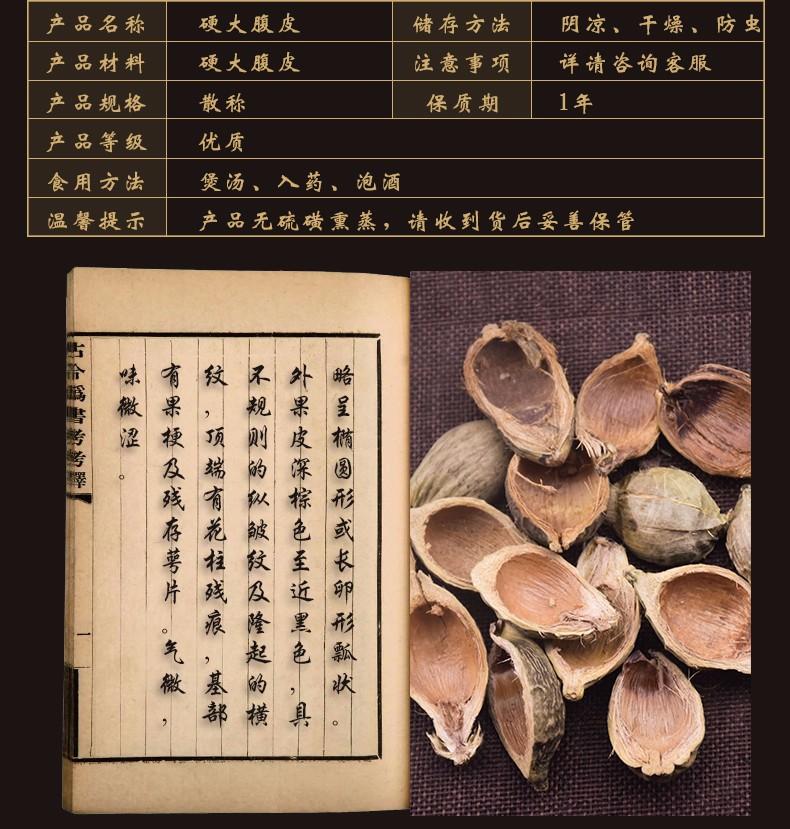 产品名称 硬大腹皮 储存方法 阴凉、干燥、防虫
产品材料 硬大腹皮 注意事项 详请咨询客服
产品规格 散称 保质期 1年
产品等级 优质
食用方法 煲汤、入药、泡酒
温馨提示 产品无硫磺熏蒸，请收到货后妥善保管
略呈椭圆形或长卵形瓢状。
外果皮深棕色至近黑色，具
不规则的纵皱纹及隆起的横
纹，顶端有花柱残痕，基部
有果梗及残存萼片。气微，
味微涩。
古今伪書考考釋
一